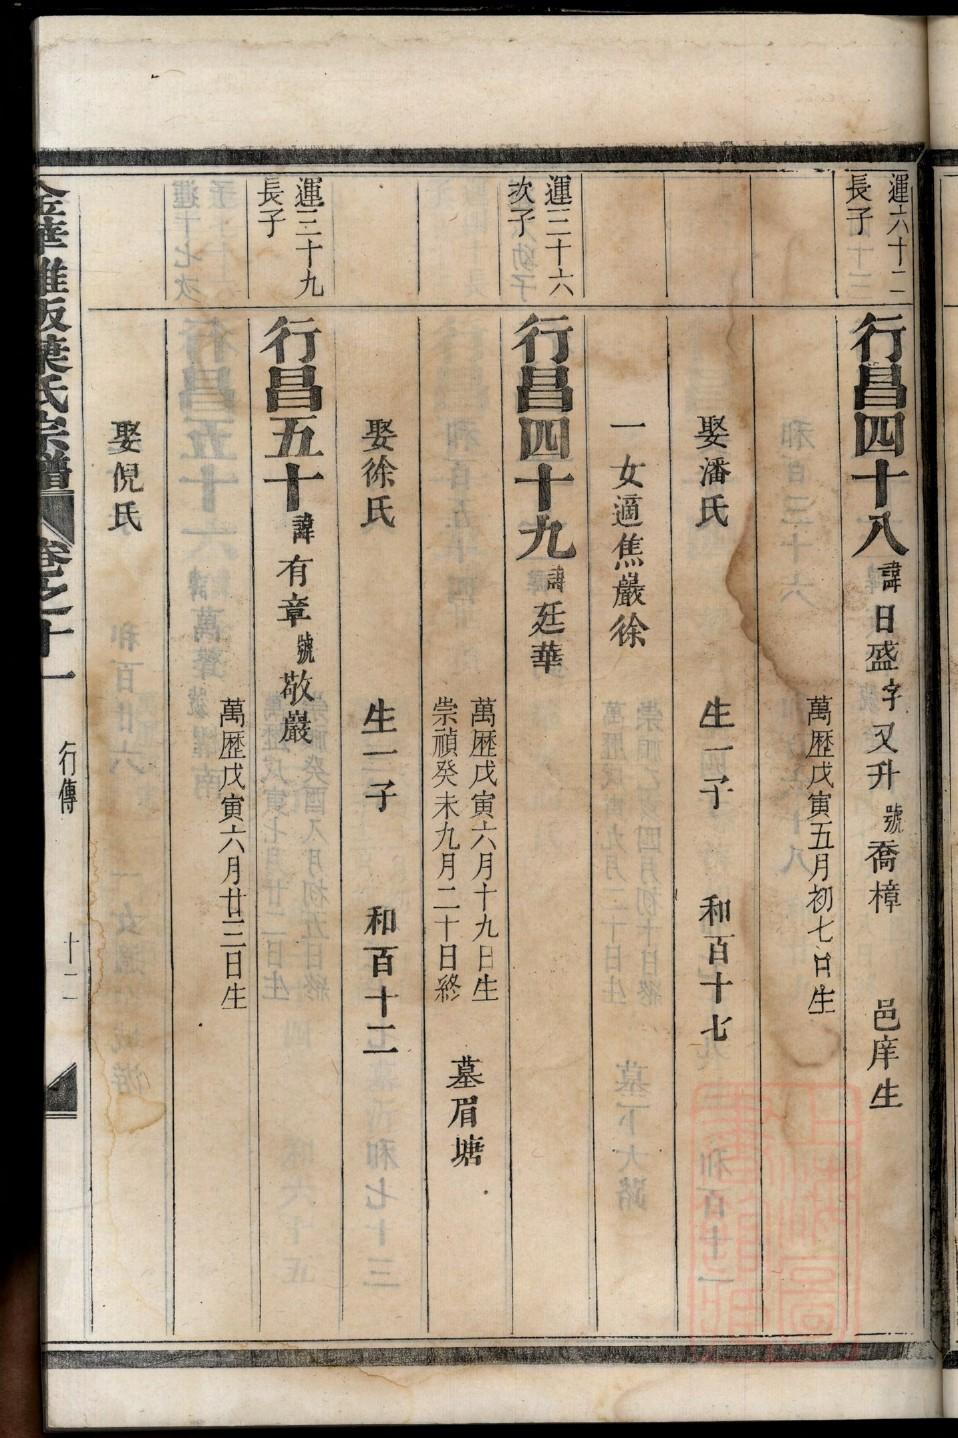 運六十二
長子
行昌四十八諱日盛字又升號喬樟 邑庠生
萬歷戊寅五月初七日生
娶潘氏 生一子 和百十七
一女適焦巖徐
運三十六
次子
行昌四十九諱廷華
萬歷戊寅六月十九日生
崇禎癸未九月二十日終
墓眉塘
娶徐氏 生一子 和百十二
運三十九
長子
行昌五十諱有章號敬巖
萬歷戊寅六月廿三日生
娶倪氏
葉氏宗譜 卷之十一 行傳 十二